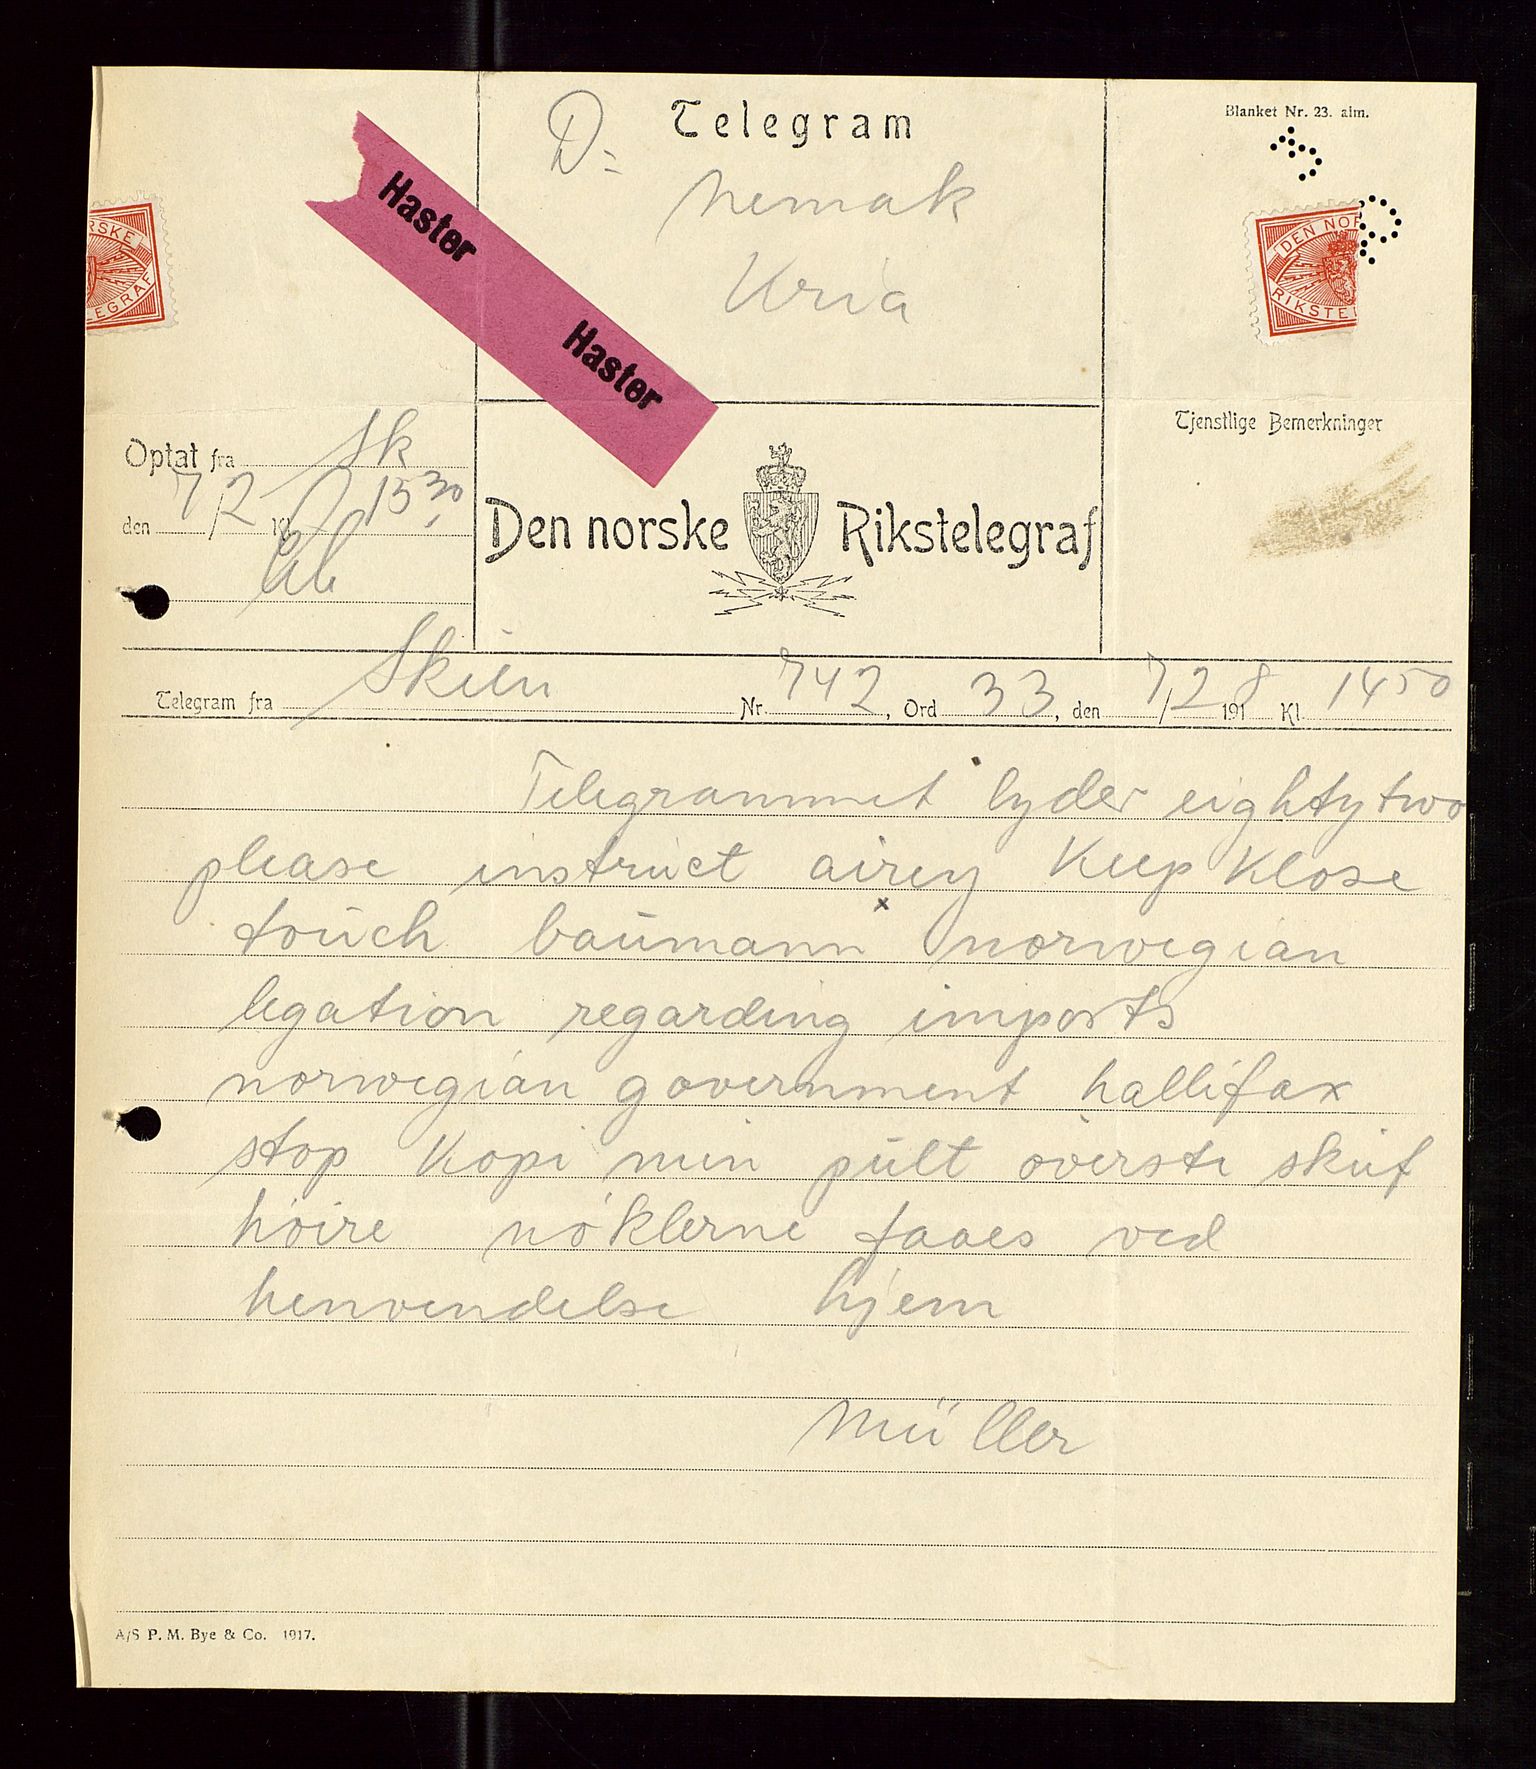 Telegram
Blanket Nr. 23. alm.
D=
Nemak
Kria
Haster
Haster
RSKE
LEGRAF
DEN NOR
RIKSTEL
Optat fra Sk
den 7/2 18 15 30
Tjenstlige Bemerkninger
Den norske Rikstelegraf
Telegram fra Skien Nr. 742, Ord 33, den 7/2 1918 Kl. 1450
Telegrammet lyder eightytwo
please instruct airey Keep Klose
touch baumann norwegian
legation regarding imports
norwegian government hallifax
stop Kopi min pult överste skuf
höire nöklerne faaes ved
henvendelse hjem
Müller
A/S P. M. Bye & Co. 1917.